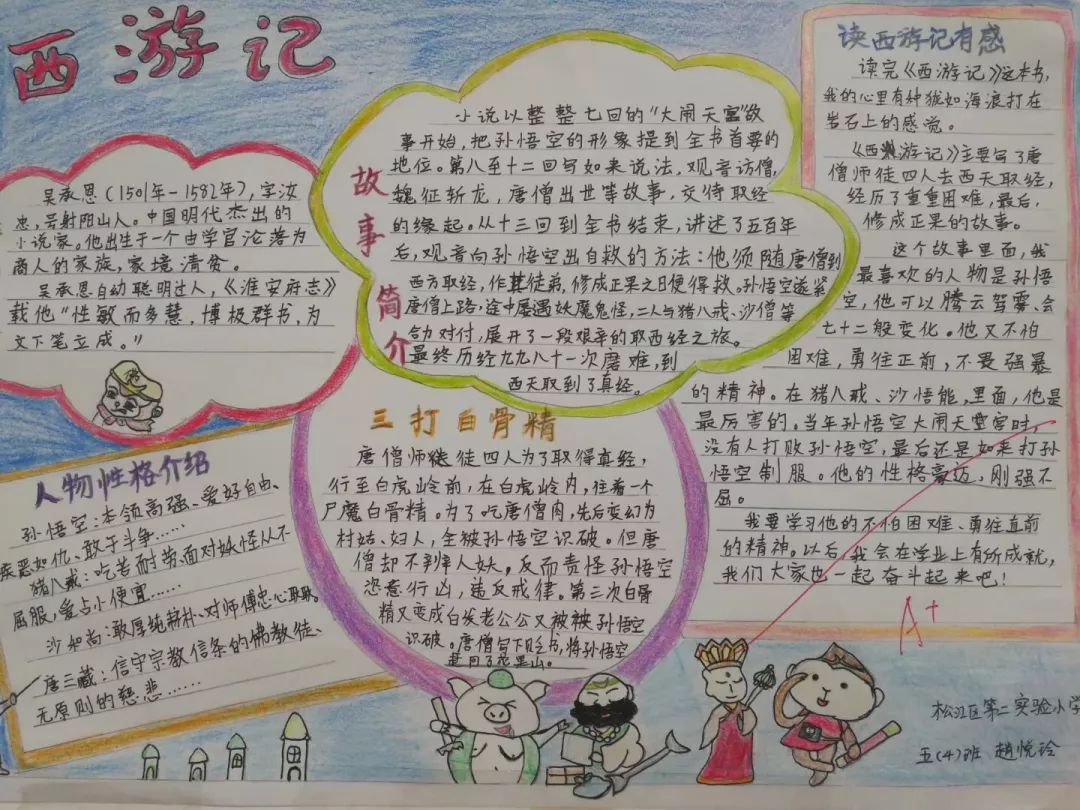 西游记
吴承恩(1501年-1582年),字汝
忠,号射阳山人。中国明代杰出的
小说家。他出生于一个由学官沦落为
商人的家族,家境清贫。
吴承恩自幼聪明过人,《淮安府志》
载他"性敏而多慧,博极群书,为
文下笔立成。"
故事简介
小说以整整七回的"大闹天宫"故
事开始,把孙悟空的形象提到全书首要的
地位。第八至十二回写如来说法,观音访僧,
魏征斩龙,唐僧出世等故事,交待取经
的缘起。从十三回到全书结束,讲述了五百年
后,观音向孙悟空出自救的方法:他须随唐僧到
西方取经,作其徒弟,修成正果之日便得救。孙悟空遂紧
唐僧上路,途中屡遇妖魔鬼怪,二人与猪八戒、沙僧等
合力对付,展开了一段艰辛的取西经之旅。
最终历经九九八十一次磨难,到
西天取到了真经。
读西游记有感
读完《西游记》这本书,
我的心里有种犹如海浪打在
岩石上的感觉。
《西游记》主要写了唐
僧师徒四人去西天取经,
经历了重重困难,最后,
修成正果的故事。
这个故事里面,我
最喜欢的人物是孙悟
空,他可以腾云驾雾、会
七十二般变化。他又不怕
困难,勇往正前,不畏强暴
的精神。在猪八戒、沙悟能,里面,他是
最厉害的。当年孙悟空大闹天宫时,
没有人打败孙悟空,最后还是如来打孙
悟空制服。他的性格豪迈,刚强不
屈。
我要学习他的不怕困难、勇往直前
的精神。以后,我会在学业上有所成就,
我们大家也一起奋斗起来吧!
A+
人物性格介绍
孙悟空:本领高强、爱好自由、
疾恶如仇、敢于斗争……
猪八戒:吃苦耐劳、面对妖怪从不
屈服,爱占小便宜……
沙和尚:敦厚纯朴、对师傅忠心耿耿。
唐三藏:信守宗教信条的佛教徒、
无原则的慈悲……
三打白骨精
唐僧师徒四人为了取得真经,
行至白虎岭前,在白虎岭内,住着一个
尸魔白骨精。为了吃唐僧肉,先后变幻为
村姑、妇人,全被孙悟空识破。但唐
僧却不辨人妖,反而责怪孙悟空
恣意行凶,违反戒律。第三次白骨
精又变成白发老公公又被孙悟空
识破。唐僧写下贬书,将孙悟空
赶回了花果山。
松江区第二实验小学
五(4)班 赵悦玲